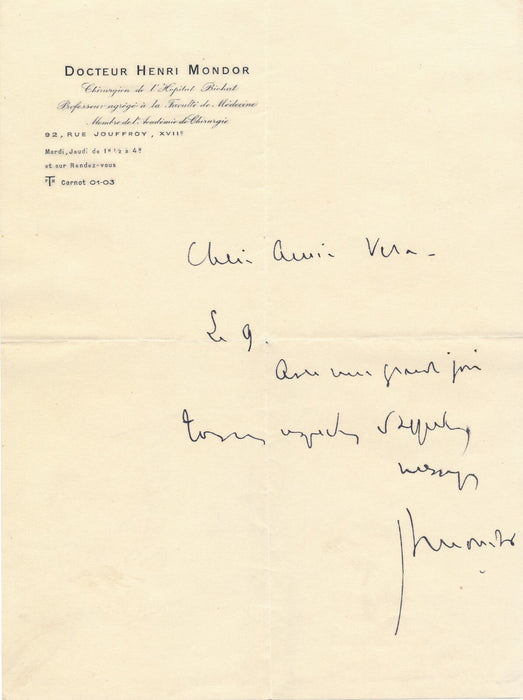 DOCTEUR HENRI MONDOR
Chirurgien de l'Hôpital Bichat
Professeur agrégé à la Faculté de Médecine
Membre de l'Académie de Chirurgie
92, RUE JOUFFROY, XVIIᵉ
Mardi, Jeudi de 1ʰ ½ à 4ʰ
et sur Rendez-vous
Carnot 01-03
Amie Vera -
Le 9.
Avec une grande joie
respectueux
message